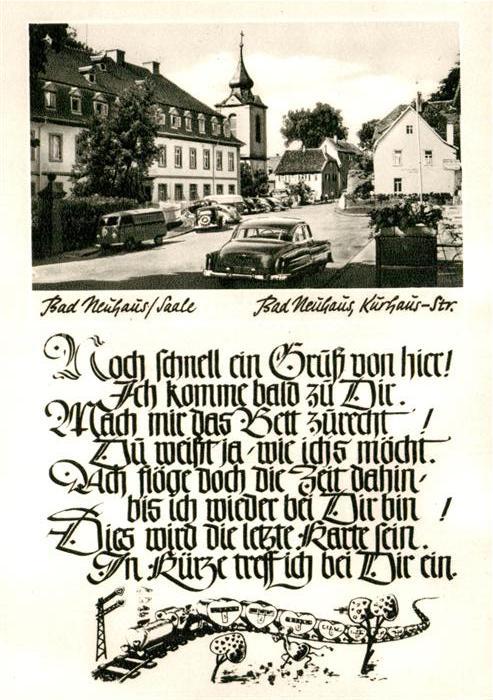 Bad Neuhaus/Saale
Bad Neuhaus, Kurhaus-Str.
Noch schnell ein Gruß von hier!
Ich komme bald zu Dir.
Mach mir das Bett zurecht !
Du weißt ja, wie ich's möcht.
Ach flöge doch die Zeit dahin,
bis ich wieder bei Dir bin !
Dies wird die letzte Karte sein.
In Kürze treff ich bei Dir ein.